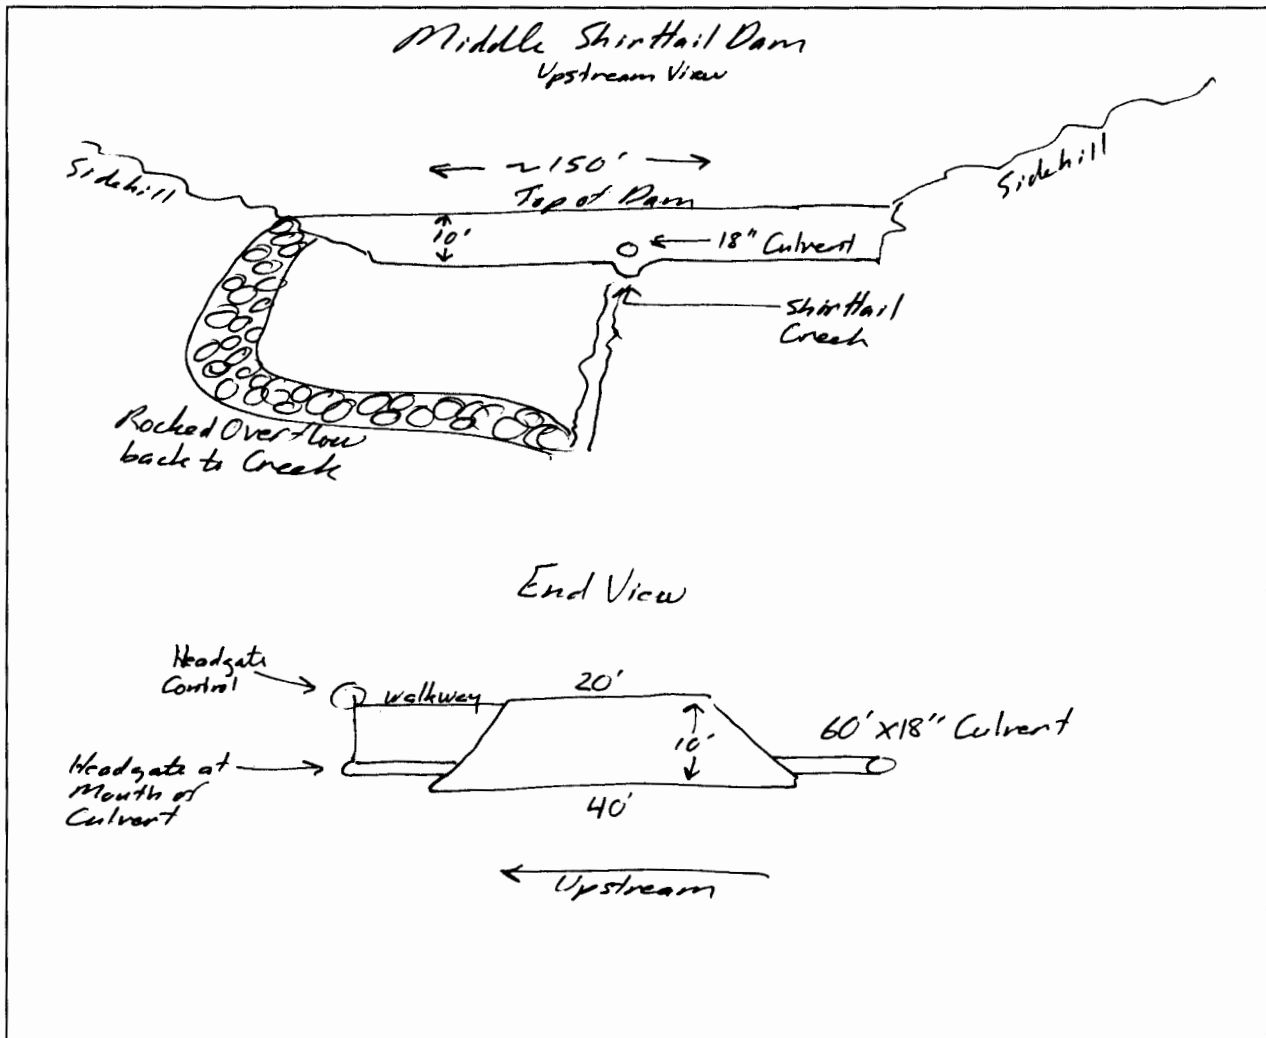 Middle Shirttail Dam
Upstream View
Sidehill
~150'
Sidehill
Top of Dam
10'
18" Culvert
Shirttail
Creek
Rocked Overflow
back to Creek
End View
Headgate
Control
walkway
20'
10'
60' x 18" Culvert
Headgate at
Mouth of
Culvert
40'
Upstream